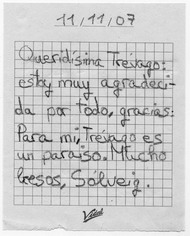 11/11/07
Queridísima Trévago:
estoy muy agradeci-
da por todo, gracias:
Para mi, Trévago es
un paraiso. Mucho
besos, Sólveig.
Vital